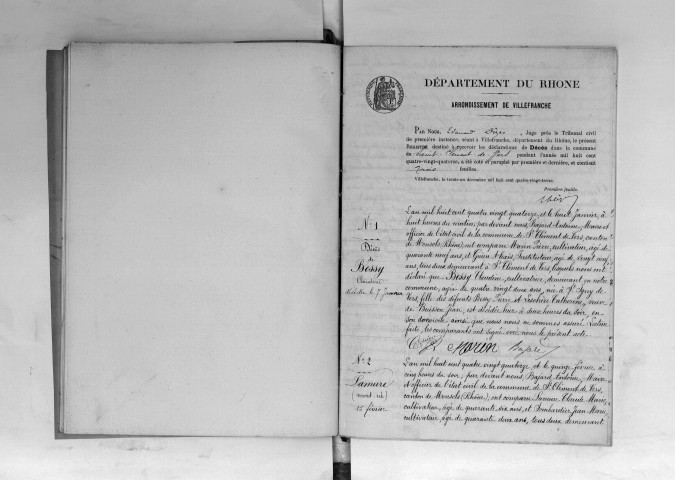 DÉPARTEMENT DU RHONE
ARRONDISSEMENT DE VILLEFRANCHE
PAR NOUS, Edouard , Juge près le Tribunal civil
de première instance, séant à Villefranche, département du Rhône, le présent
REGISTRE destiné à recevoir les déclarations de Décès dans la commune
de Saint Clément de Vers pendant l'année mil huit cent
quatre-vingt-quatorze, a été coté et paraphé par première et dernière, et contient
feuilles.
Villefranche, le trente-un décembre mil huit cent quatre-vingt-treize.
Première feuille.
N° 1
Décès
de
Bessy
Claudine
décédée le 7 Janvier
L'an mil huit cent quatre vingt quatorze et le huit Janvier, à
huit heures du matin, par devant nous, Bajard Antoine, Maire et
officier de l'état civil de la commune de St Clément de Vers, canton
de Monsols (Rhône), ont comparu Morin Pierre, cultivateur, âgé de
quarante neuf ans, et Alexis, Instituteur, âgé de vingt neuf
ans, tous deux demeurant à St Clément de Vers, lesquels nous ont
déclaré que Bessy Claudine, cultivatrice, demeurant en notre
commune, âgée de quatre vingt deux ans, née à St Igny de
Vers, fille des défunts Bessy Pierre et Catherine, veuve
de Buisson Jean, est décédée hier à deux heures du soir en
son domicile, ainsi que nous nous en sommes assuré. Lecture
faite, les comparants ont signé avec nous le présent acte.
Morin Bajard
N° 2
Lamure
(mort né)
15 février
L'an mil huit cent quatre vingt quatorze et le quinze février, à
cinq heures du soir, par devant nous Bajard Antoine, Maire
et officier de l'état civil de la commune de St Clément de Vers,
canton de Monsols (Rhône), ont comparu Lamure Claude Marie,
cultivateur, âgé de quarante six ans, et Jean Marie,
cultivateur, âgé de quarante deux ans, tous deux demeurant